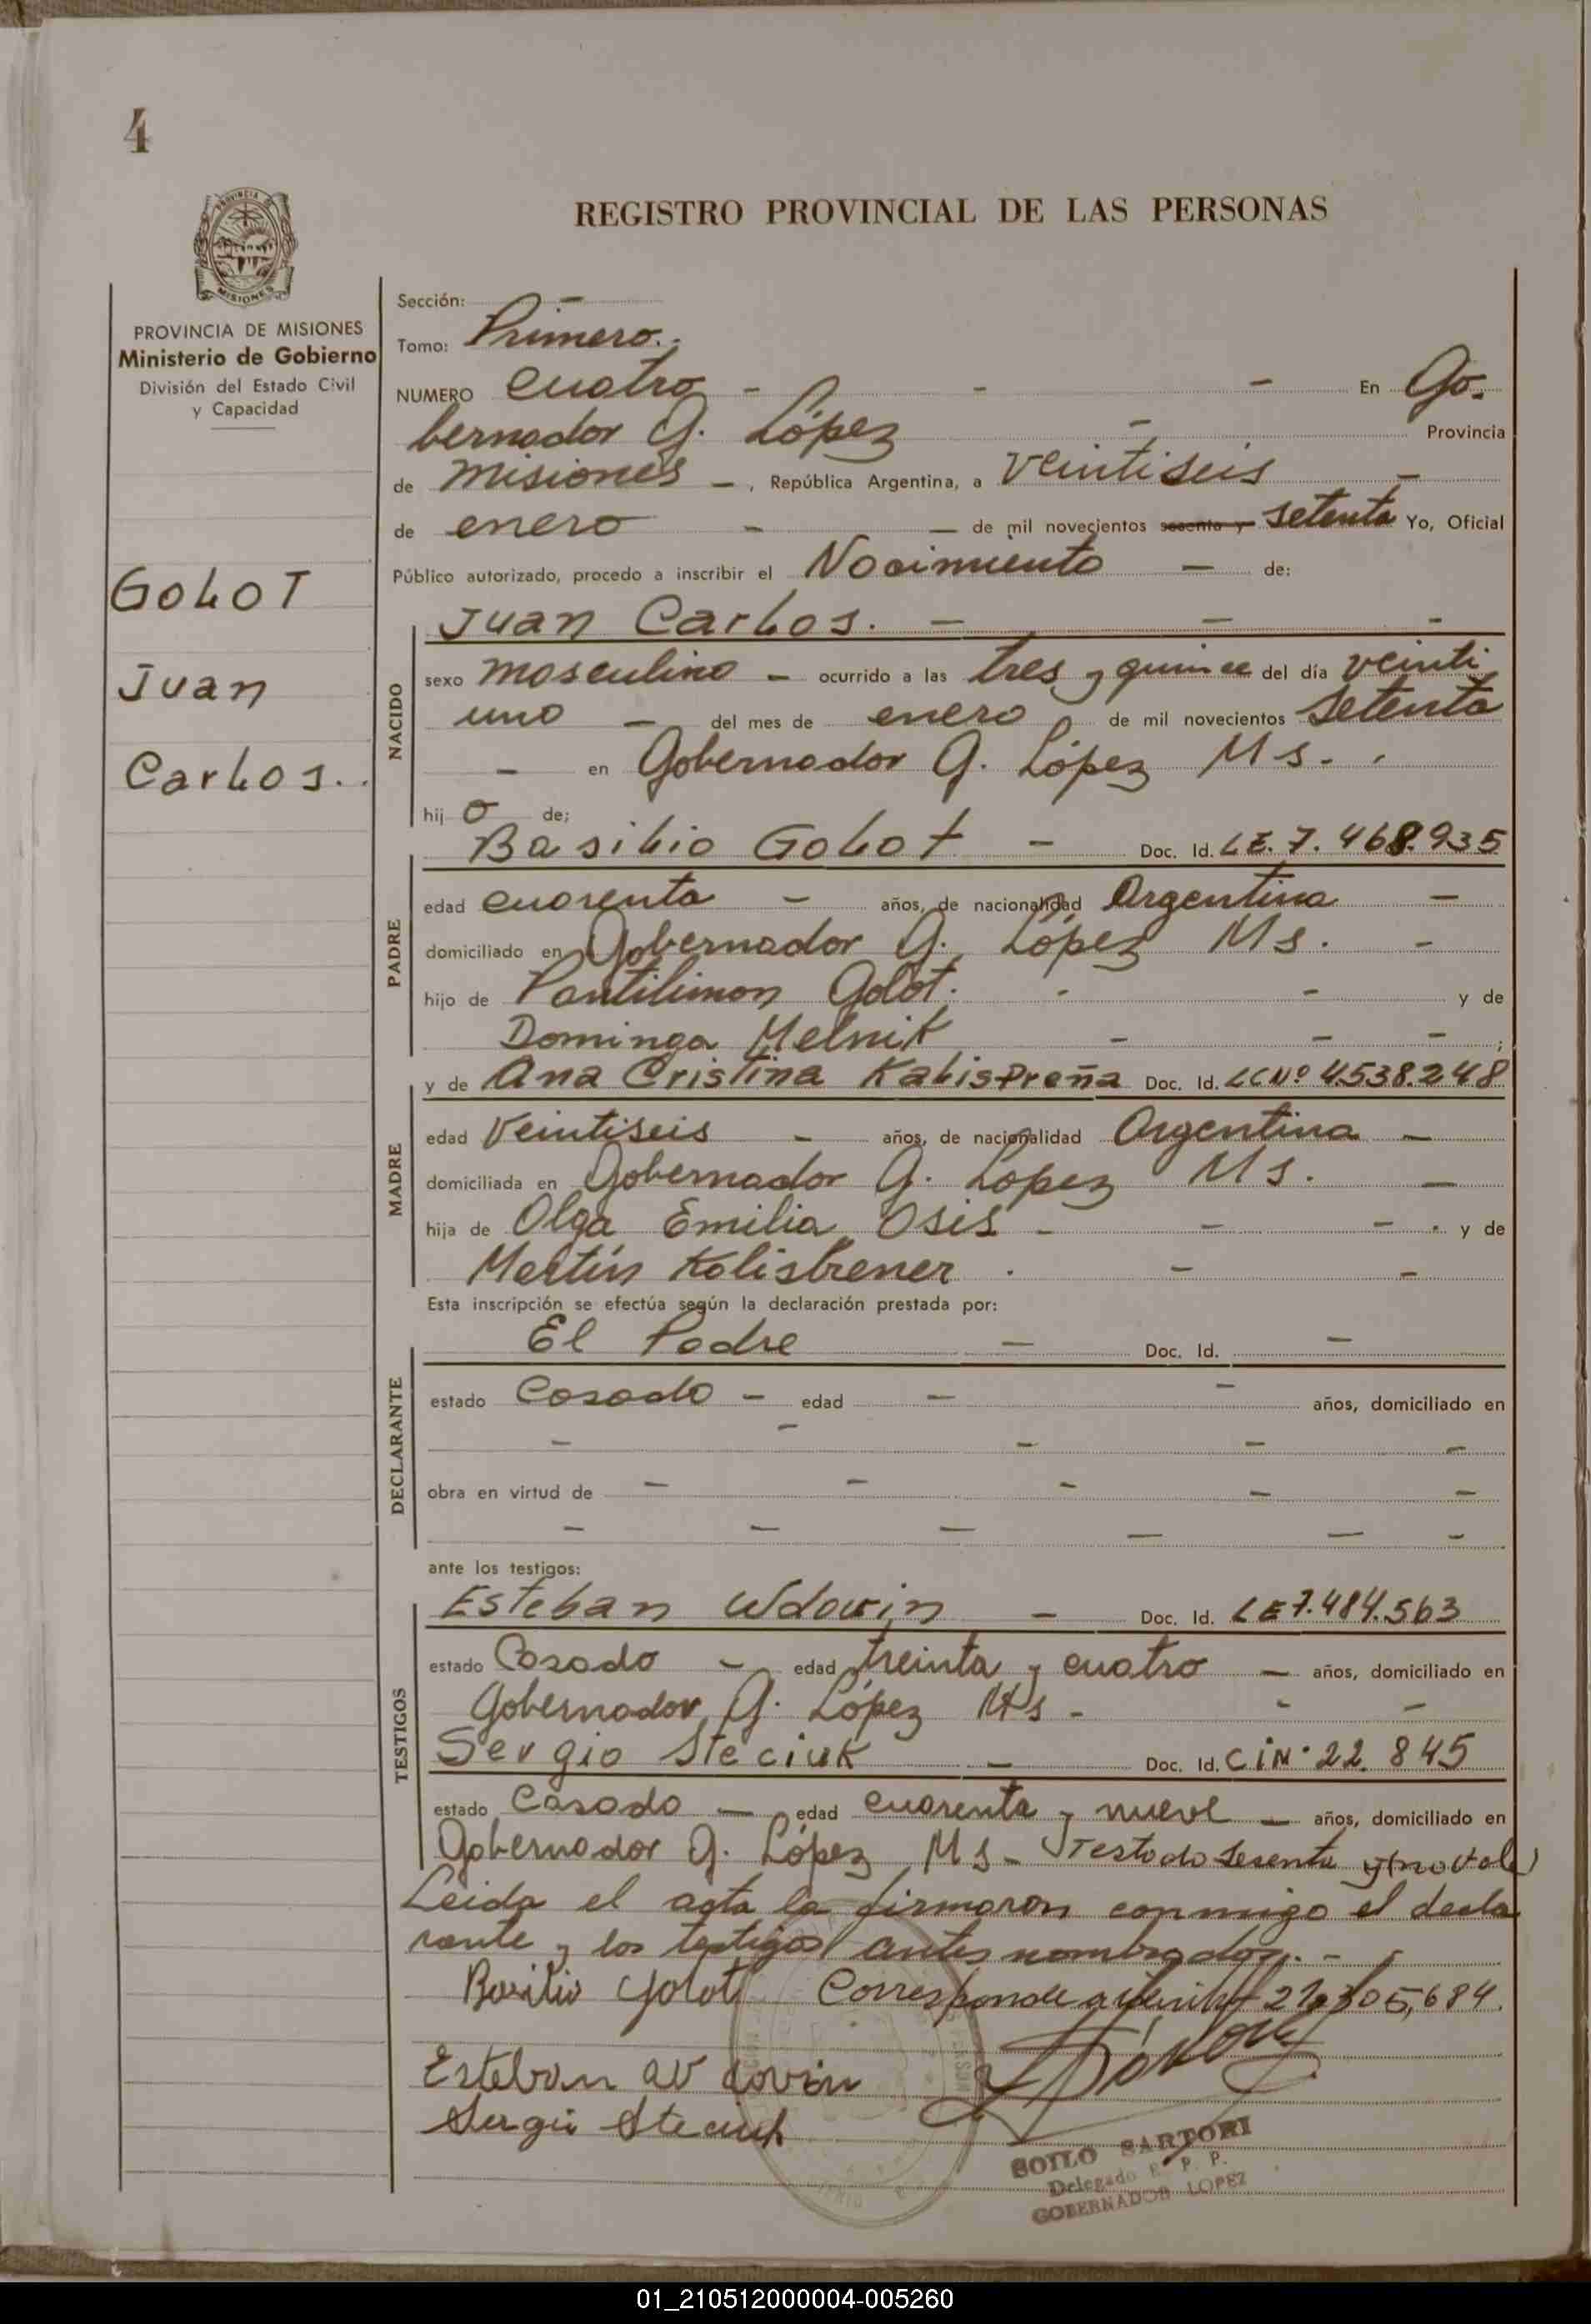 4
REGISTRO PROVINCIAL DE LAS PERSONAS
PROVINCIA DE MISIONES
MISIONES
PROVINCIA DE MISIONES
Ministerio de Gobierno
División del Estado Civil
y Capacidad
GOLOT
Juan
Carlos..
Sección: -
Tomo: Primero.
NUMERO cuatro - - - En Go-
bernador G. López - Provincia
de Misiones -, República Argentina, a veintiseis -
de enero - - de mil novecientos sesenta y setenta Yo, Oficial
Público autorizado, procedo a inscribir el Nacimiento - de:
NACIDO
Juan Carlos. - - -
sexo masculino - ocurrido a las tres y quince del día veinti
uno - del mes de enero, de mil novecientos setenta
- en Gobernador G. López Ms. .
hij o de;
PADRE
Basilio Golot - Doc. Id. LE. 7. 468.935
edad cuarenta - años, de nacionalidad Argentina -
domiciliado en Gobernador G. López Ms. -
hijo de Pantilimon Golot. - - y de
Dominga Melnik - - - ;
MADRE
y de Ana Cristina Kalispreña Doc. Id. LC Nº 4.538.248
edad Veintiseis - años, de nacionalidad Argentina -
domiciliada en Gobernador G. Lopez Ms. -
hija de Olga Emilia Osis - - - . y de
Martín Kolisbrener . - -
Esta inscripción se efectúa según la declaración prestada por:
DECLARANTE
El Padre - Doc. Id. -
estado Casado - edad - - años, domiciliado en
- - - - -
obra en virtud de - - - - -
- - - - - -
ante los testigos:
TESTIGOS
Esteban Wdovin - Doc. Id. LE 7.484.563
estado Casado - edad treinta y cuatro - años, domiciliado en
Gobernador G. López Ms - - -
Sergio Steciuk - Doc. Id. CIN· 22. 845
estado Casado - edad cuarenta y nueve - años, domiciliado en
Gobernador G. López Ms - Testado sesenta y (no vale)
Leida el acta la firmaron conmigo el decla
rante y los testigos antes nombrados. -
Basilio Golot Corresponde 21,305,684.
Esteban Wdovin
Sergio Steciuk
SOILO SARTORI
Delegado R. P. P.
GOBERNADOR LOPEZ
01_210512000004-005260